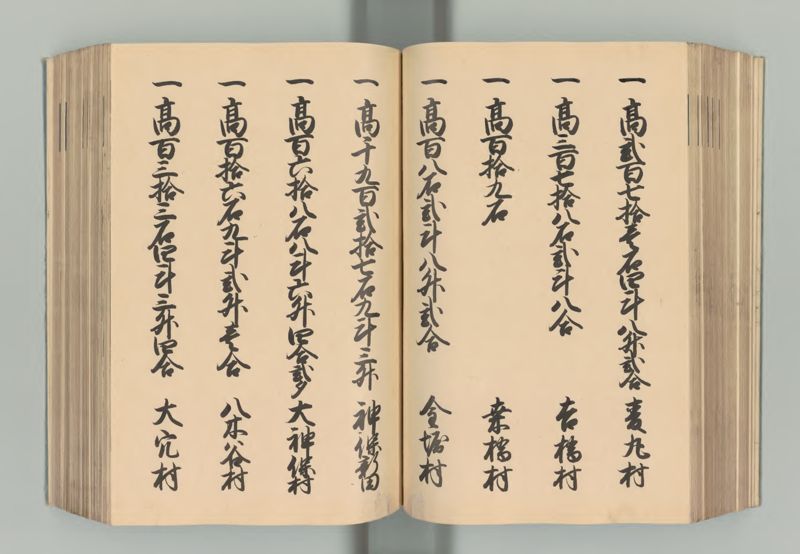 一 高弐百七拾壱石四斗八升弐合 麦丸村
一 高三百七拾八石弐斗八合 吉橋村
一 高百拾九石 桑橋村
一 高百八石弐斗八升弐合 金堀村
一 高千九百弐拾七石九斗三升 神保新田
一 高百六拾八石八斗六升四合弐夕 大神保村
一 高百拾六石九斗弐升壱合 八木ヶ谷村
一 高百三拾三石四斗三升四合 大穴村